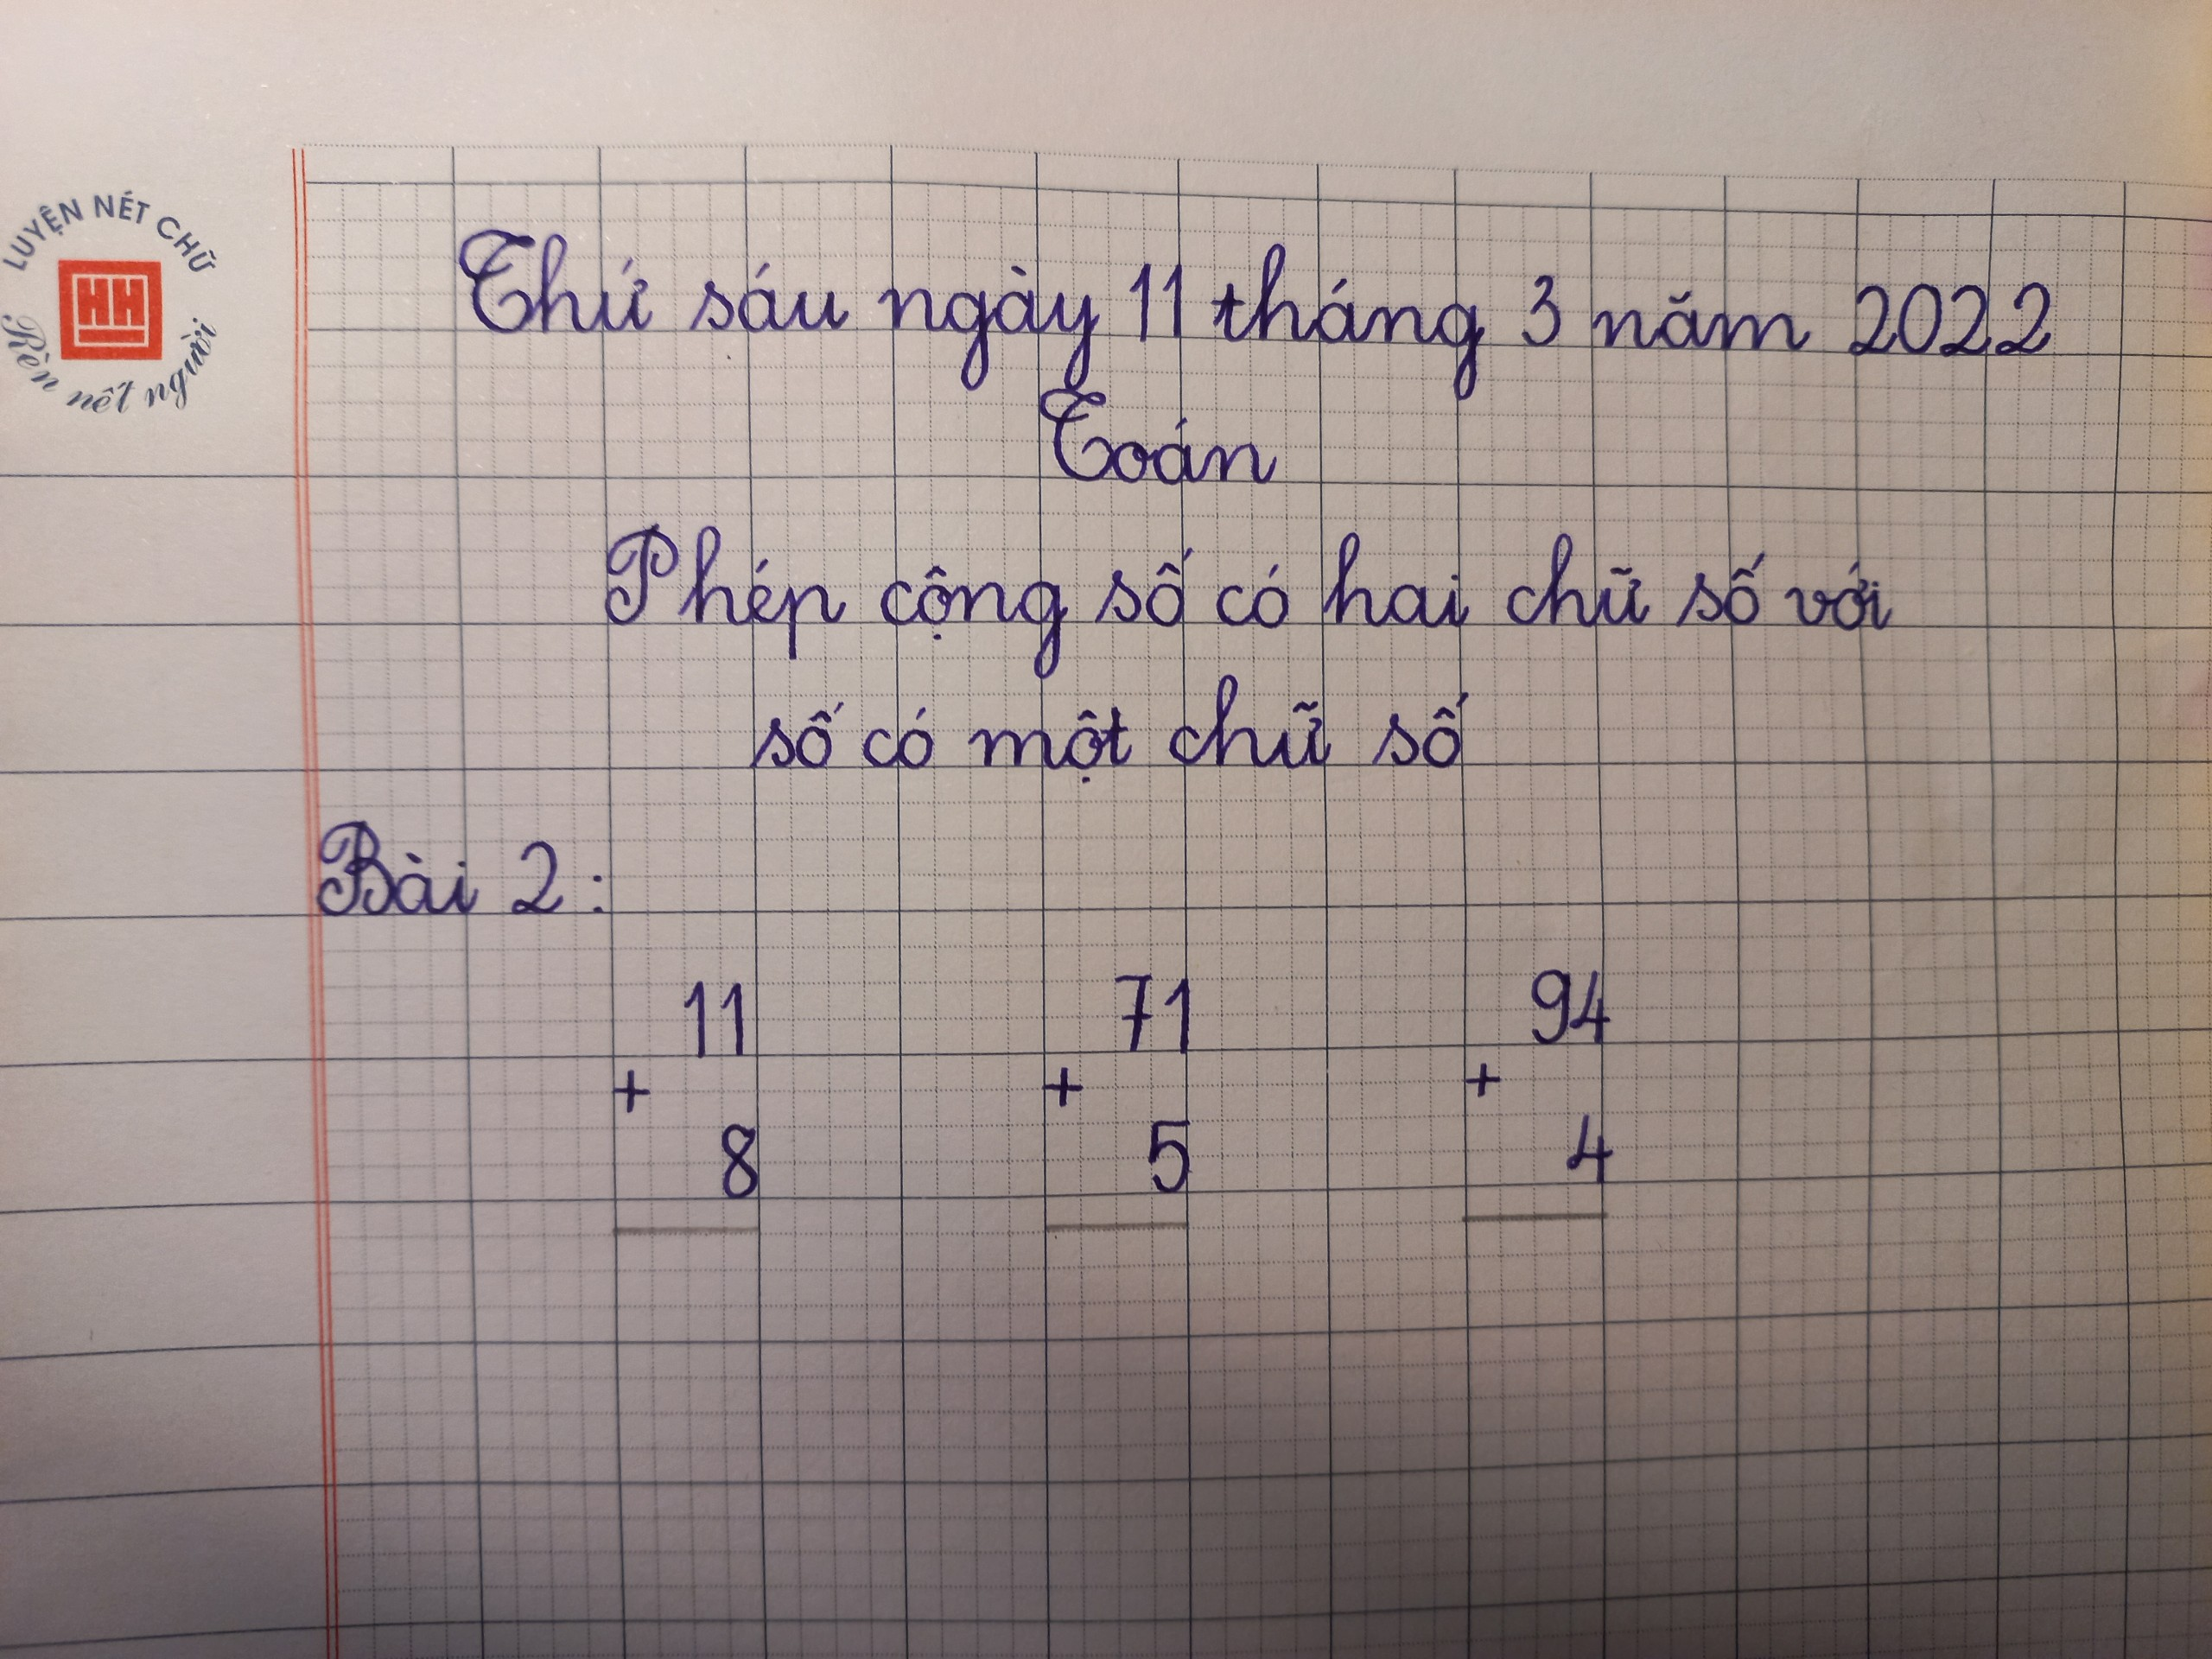 LUYỆN NÉT CHỮ
HH
Rèn nết người
Thứ sáu ngày 11 tháng 3 năm 2022
Toán
Phép cộng số có hai chữ số với
số có một chữ số
Bài 2:
11 71 94
+ + +
8 5 4